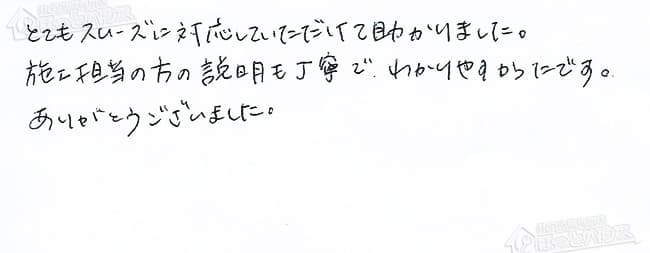 とてもスムーズに対応していただけて助かりました。
施工担当の方の説明も丁寧で、わかりやすかったです。
ありがとうございました。